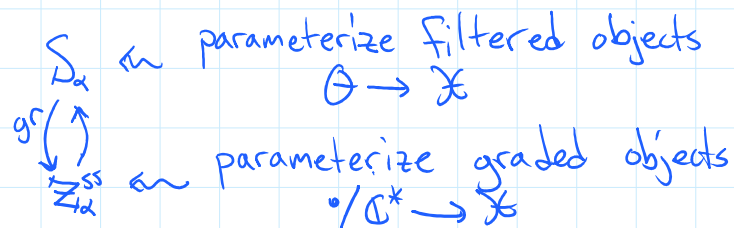 S_α ⇜ parameterize filtered objects
Θ → 𝔛
gr
Z_α^ss ⇜ parameterize graded objects
•/ℂ* → 𝔛